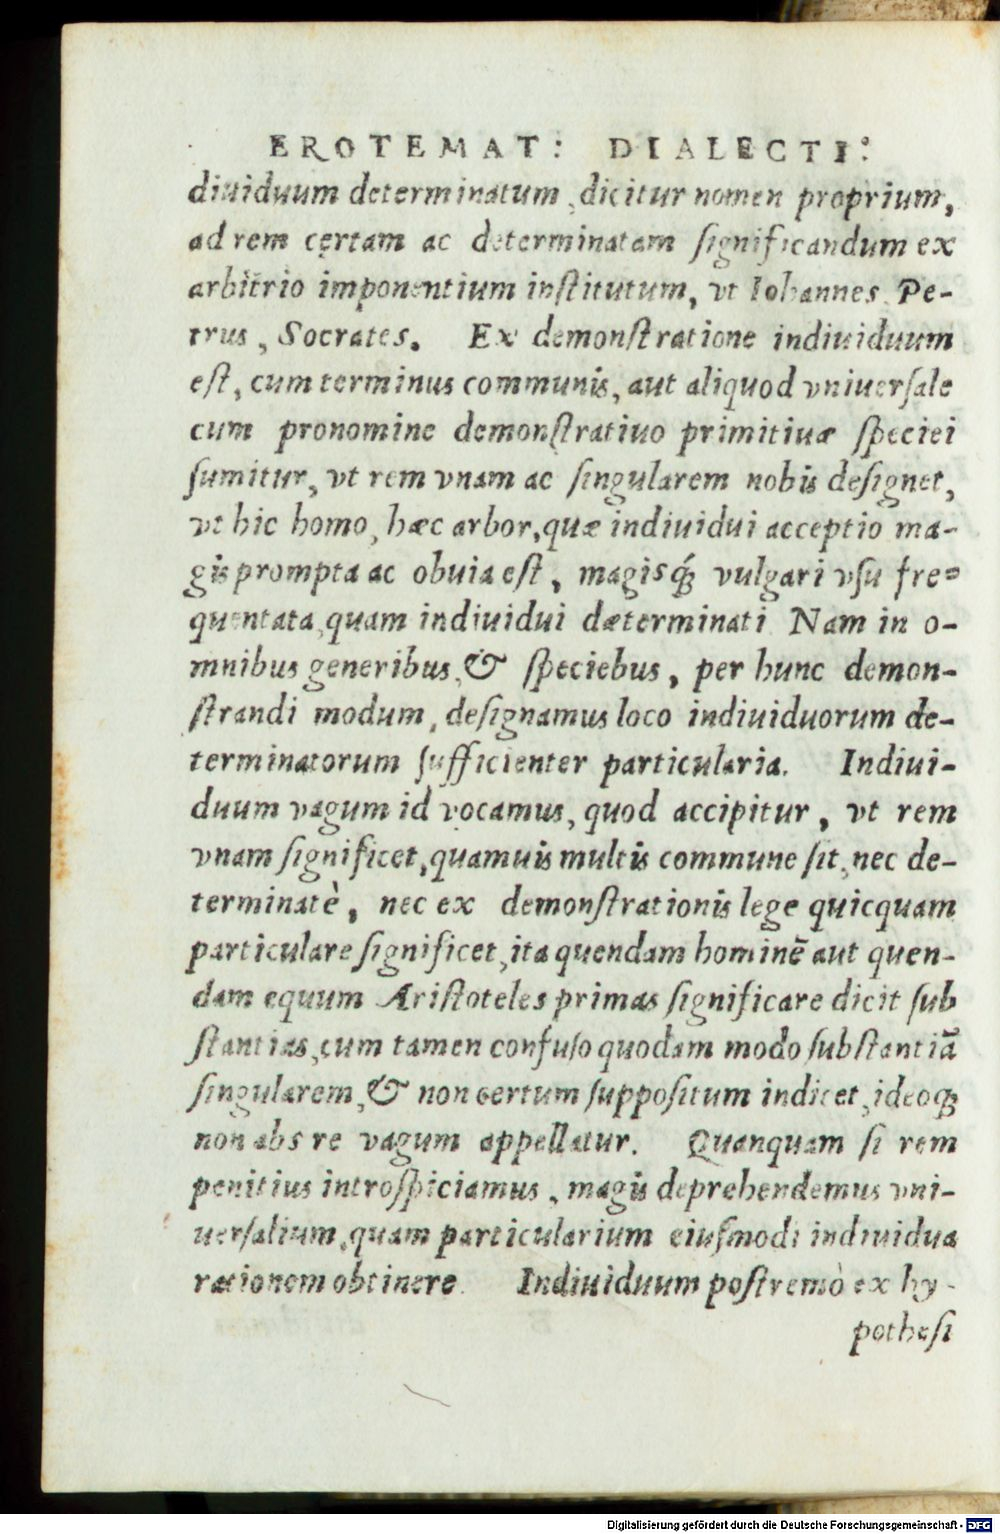 EROTEMAT: DIALECTI:
diuiduum determinatum, dicitur nomen proprium,
ad rem certam ac determinatam ſignificandum ex
arbitrio imponentium inſtitutum, vt Iohannes Pe-
trus, Socrates. Ex demonſtratione indiuiduum
eſt, cum terminus communis, aut aliquod vniuerſale
cum pronomine demonſtratiuo primitiuæ ſpeciei
ſumitur, vt rem vnam ac ſingularem nobis deſignet,
vt hic homo, hæc arbor, quæ indiuidui acceptio ma-
gis prompta ac obuia eſt, magisq́ꝫ vulgari vſu fre-
quentata, quam indiuidui dæterminati Nam in o-
mnibus generibus, & ſpeciebus, per hunc demon-
ſtrandi modum, deſignamus loco indiuiduorum de-
terminatorum ſufficienter particularia. Indiui-
duum vagum id vocamus, quod accipitur, vt rem
vnam ſignificet, quamuis multis commune ſit, nec de-
terminatè, nec ex demonſtrationis lege quicquam
particulare ſignificet, ita quendam hominē aut quen-
dam equum Ariſtoteles primas ſignificare dicit ſub
ſtantias, cum tamen confuſo quodam modo ſubſtantiā
ſingularem, & non certum ſuppoſitum indicet, ideoqꝫ
non abs re vagum appellatur. Quanquam ſi rem
penitius introſpiciamus, magis deprehendemus vni-
uerſalium, quam particularium eiuſmodi indiuidua
rationem obtinere. Indiuiduum poſtremò ex hy-
potheſi
Digitalisierung gefördert durch die Deutsche Forschungsgemeinschaft - DFG